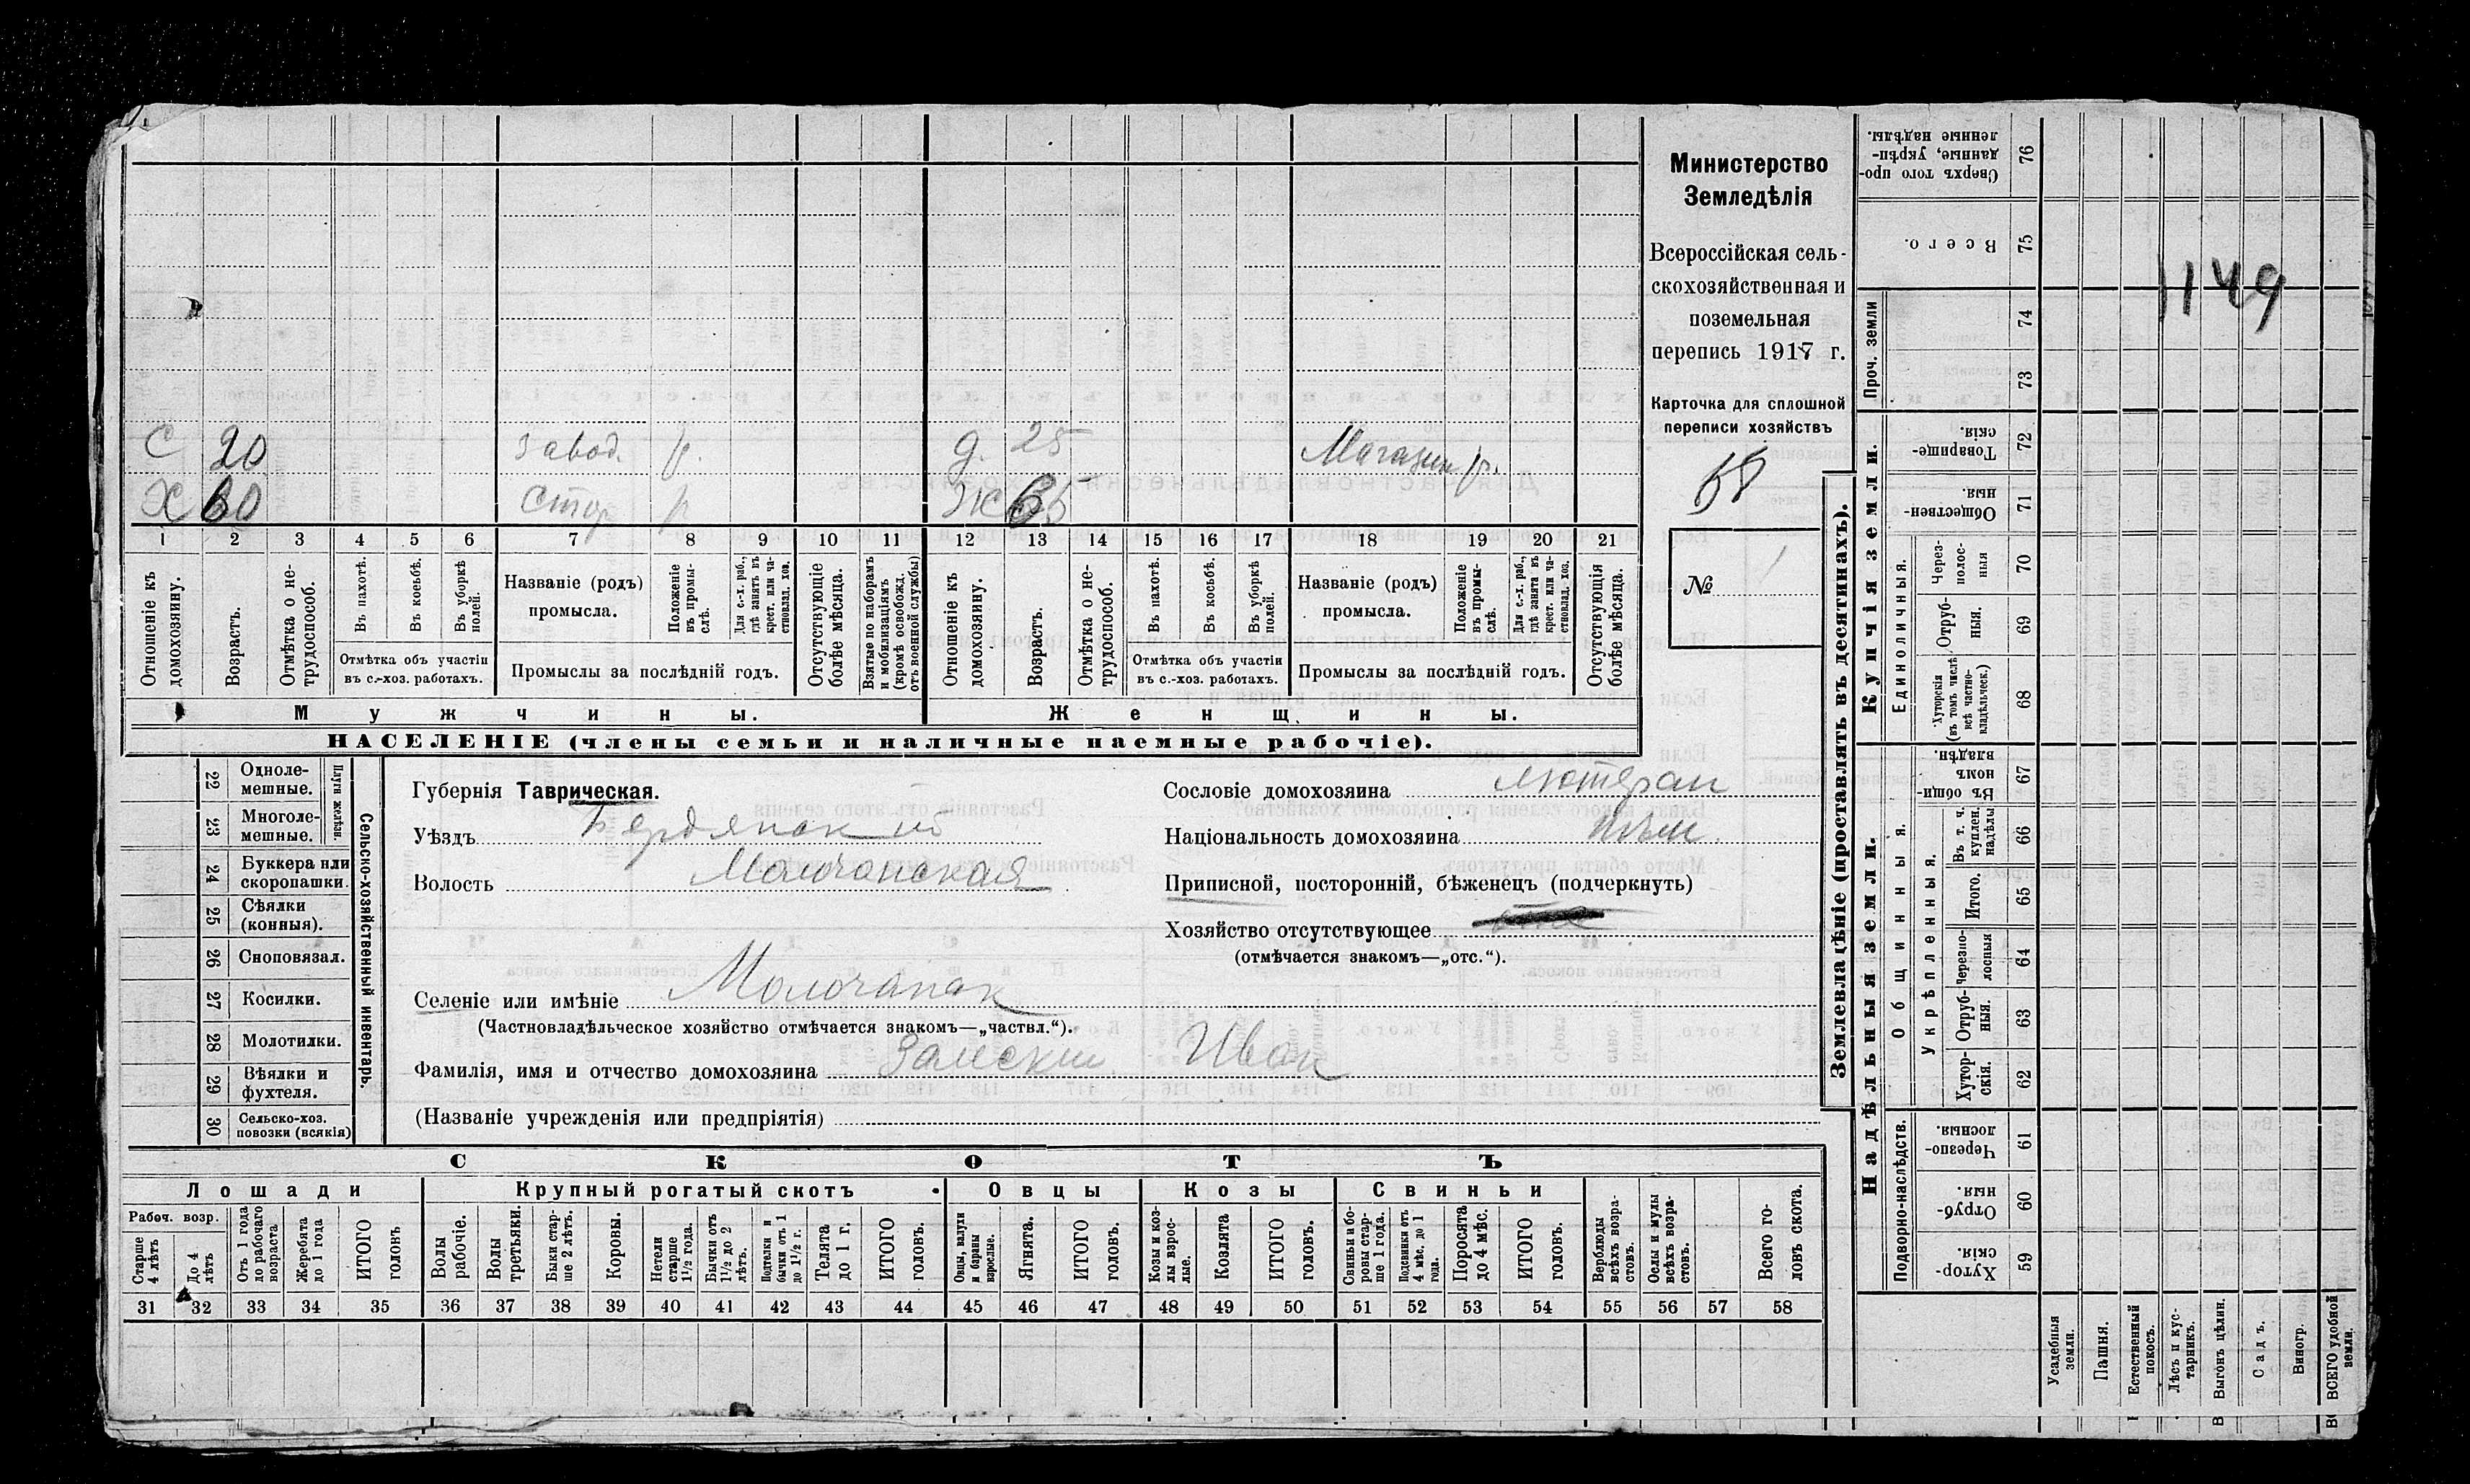 Министерство
Земледѣлія
Всероссійская сель-
скохозяйственная и
поземельная
перепись 1917 г.
Карточка для сплошной
переписи хозяйствъ
58
№ 1
С 20 завод. р. д. 25 Магазин р.
Х 60 стор р Ж 65
1 2 3 4 5 6 7 8 9 10 11 12 13 14 15 16 17 18 19 20 21
Отношеніе къ домохозяину.
Возрастъ.
Отмѣтка о не-трудоспособ.
Въ пахотѣ.
Въ косьбѣ.
Въ уборкѣ полей.
Отмѣтка объ участіи
въ с.-хоз. работахъ.
Названіе (родъ)
промысла.
Положеніе въ промы-слѣ.
Для с.-х. раб., гдѣ занятъ въ крест. или ча-стновлад. хоз.
Промыслы за послѣдній годъ.
Отсутствующіе болѣе мѣсяца.
Взятые по наборамъ и мобилизаціямъ (кромѣ освобожд. отъ военной службы)
Отношеніе къ домохозяину.
Возрастъ.
Отмѣтка о не-трудоспособ.
Въ пахотѣ.
Въ косьбѣ.
Въ уборкѣ полей.
Отмѣтка объ участіи
въ с.-хоз. работахъ.
Названіе (родъ)
промысла.
Положеніе въ промы-слѣ.
Для с.-х. раб., гдѣ занята въ крест. или ча-стновлад. хоз.
Промыслы за послѣдній годъ.
Отсутствующія болѣе мѣсяца.
Мужчины. Женщины.
НАСЕЛЕНІЕ (члены семьи и наличные наемные рабочіе).
Сельско-хозяйственный инвентарь.
Плуги желѣзн.
22 Одноле-мешные.
23 Многоле-мешные.
24 Буккера или скоропашки.
25 Сѣялки (конныя).
26 Сноповязал.
27 Косилки.
28 Молотилки.
29 Вѣялки и фухтеля.
30 Сельско-хоз. повозки (всякія)
Губернія Таврическая.
Уѣздъ Бердянский
Волость Молочанская
Сословіе домохозяина лютеран
Національность домохозяина нѣм.
Приписной, посторонній, бѣженецъ (подчеркнуть)
Хозяйство отсутствующее
(отмѣчается знакомъ—„отс.“).
Селеніе или имѣніе Молочанск
(Частновладѣльческое хозяйство отмѣчается знакомъ—„частвл.“).
Фамилія, имя и отчество домохозяина Залеский Иван
(Названіе учрежденія или предпріятія)
СКОТЪ
Лошади Крупный рогатый скотъ Овцы Козы Свиньи
Рабоч. возр.
Старше 4 лѣтъ
До 4 лѣтъ
Отъ 1 года до рабочаго возраста
Жеребята до 1 года
ИТОГО головъ
Волы рабочіе.
Волы третьяки.
Быки стар-ше 2 лѣтъ.
Коровы.
Нетели старше 1½ года.
Бычки отъ 1½ до 2 лѣтъ.
Подтелки и бычки отъ 1 до 1½ г.
Телята до 1 г.
ИТОГО головъ.
Овцы, валухи и бараны взрослые.
Ягнята.
ИТОГО головъ.
Козы и коз-лы взрос-лые.
Козлята
ИТОГО головъ.
Свиньи и бо-ровы стар-ше 1 года.
Подсвинки отъ 4 мѣс. до 1 года.
Поросята до 4 мѣс.
ИТОГО головъ.
Верблюды всѣхъ возра-стовъ.
Ослы и мулы всѣхъ возра-стовъ.
Всего го-ловъ скота.
31 32 33 34 35 36 37 38 39 40 41 42 43 44 45 46 47 48 49 50 51 52 53 54 55 56 57 58
Землевладѣніе (проставлять въ десятинахъ).
Надѣльныя земли. Купчія земли.
Проч. земли
Сверхъ того про-данные, укрѣп-ленные надѣлы. 76
Всего. 75
74
73
Товарище-скія. 72
Обществен-ныя. 71
Единоличныя.
Через-полос-ныя 70
Отруб-ныя. 69
Хуторскія (въ томъ числѣ всѣ частно-владѣльческ.) 68
Общинныя.
Въ общи-номъ владѣн. 67
Укрѣпленныя.
Въ т. ч. куплен. надѣлы 66
Итого. 65
Черезпо-лосныя 64
Отруб-ныя. 63
Хутор-скія. 62
Подворно-наслѣдств.
Черезпо-лосныя 61
Отруб-ныя. 60
Хутор-скія 59
Усадебныя земли.
Пашня.
Естественный покосъ.
Лѣсъ и кус-тарникъ.
Выгонъ цѣлин.
Садъ.
Виногр.
ВСЕГО удобной земли.
1149